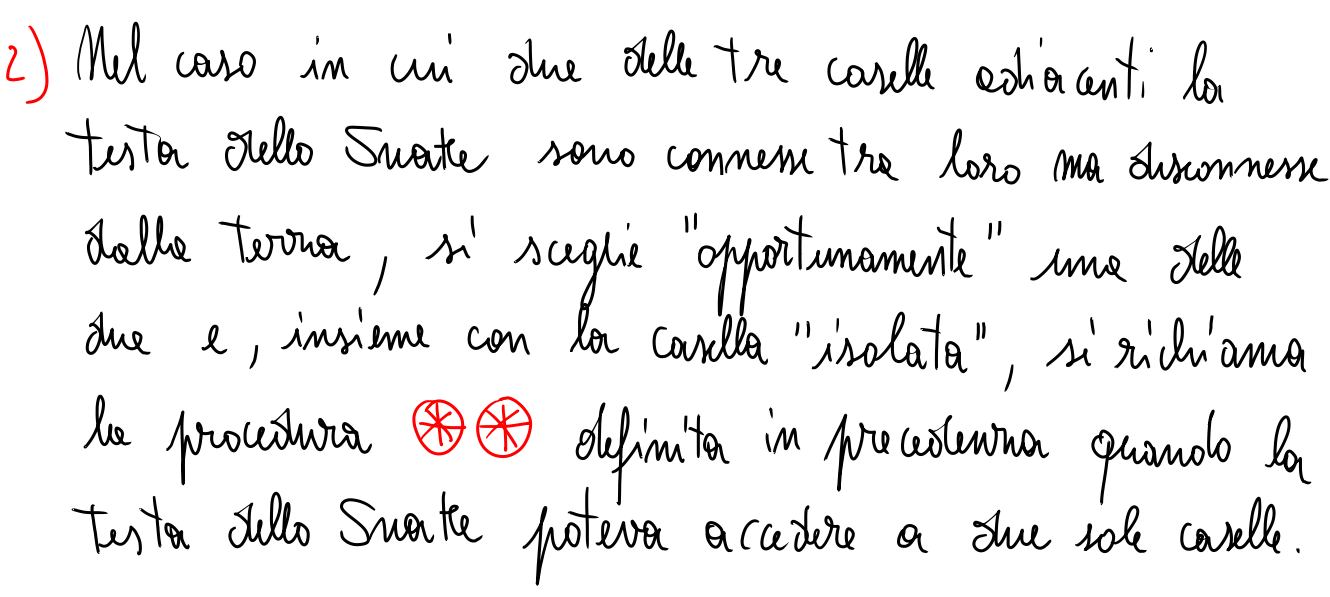 2) Nel caso in cui due delle tre caselle adiacenti la
testa dello Snake sono connesse tra loro ma disconnesse
dalla terza, si sceglie "opportunamente" una delle
due e, insieme con la casella "isolata", si richiama
la procedura ⊛⊛ definita in precedenza quando la
testa dello Snake poteva accedere a due sole caselle.